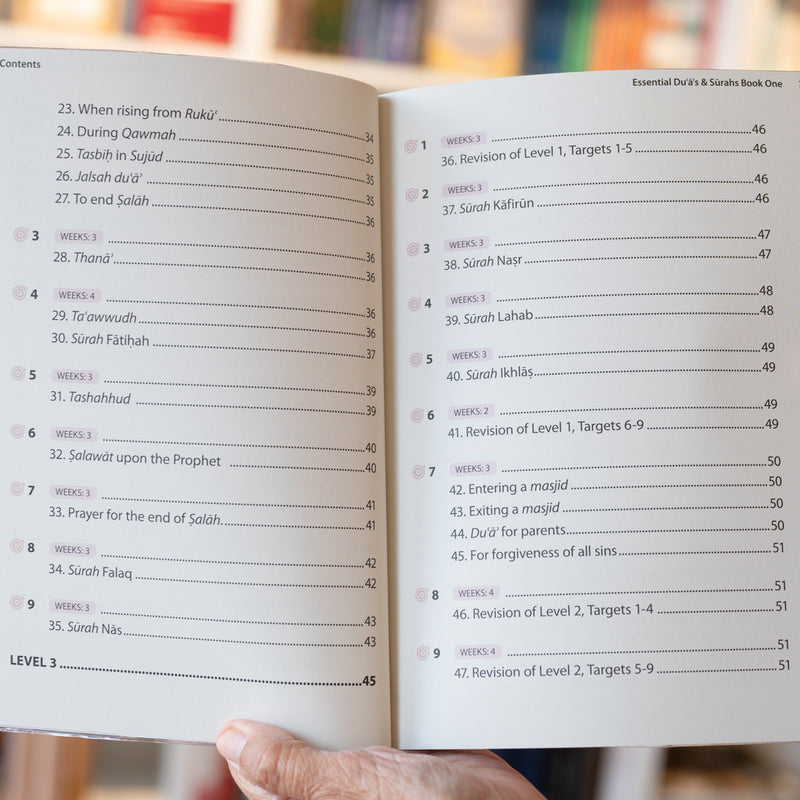 Contents
23. When rising from Rukūʿ ........ 34
24. During Qawmah ........ 35
25. Tasbiḥ in Sujūd ........ 35
26. Jalsah duʿāʾ ........ 35
27. To end Ṣalāh ........ 36
3 WEEKS: 3 ........ 36
28. Thanāʾ ........ 36
4 WEEKS: 4 ........ 36
29. Taʿawwudh ........ 36
30. Sūrah Fātiḥah ........ 37
5 WEEKS: 3 ........ 39
31. Tashahhud ........ 39
6 WEEKS: 3 ........ 40
32. Ṣalawāt upon the Prophet ........ 40
7 WEEKS: 3 ........ 41
33. Prayer for the end of Ṣalāh. ........ 41
8 WEEKS: 3 ........ 42
34. Sūrah Falaq ........ 42
9 WEEKS: 3 ........ 43
35. Sūrah Nās ........ 43
LEVEL 3 ........ 45
Essential Duʿāʾs & Sūrahs Book One
1 WEEKS: 3 ........ 46
36. Revision of Level 1, Targets 1-5 ........ 46
2 WEEKS: 3 ........ 46
37. Sūrah Kāfirūn ........ 46
3 WEEKS: 3 ........ 47
38. Sūrah Naṣr ........ 47
4 WEEKS: 3 ........ 48
39. Sūrah Lahab ........ 48
5 WEEKS: 3 ........ 49
40. Sūrah Ikhlāṣ ........ 49
6 WEEKS: 2 ........ 49
41. Revision of Level 1, Targets 6-9 ........ 49
7 WEEKS: 3 ........ 50
42. Entering a masjid ........ 50
43. Exiting a masjid ........ 50
44. Duʿāʾ for parents ........ 50
45. For forgiveness of all sins ........ 51
8 WEEKS: 4 ........ 51
46. Revision of Level 2, Targets 1-4 ........ 51
9 WEEKS: 4 ........ 51
47. Revision of Level 2, Targets 5-9 ........ 51